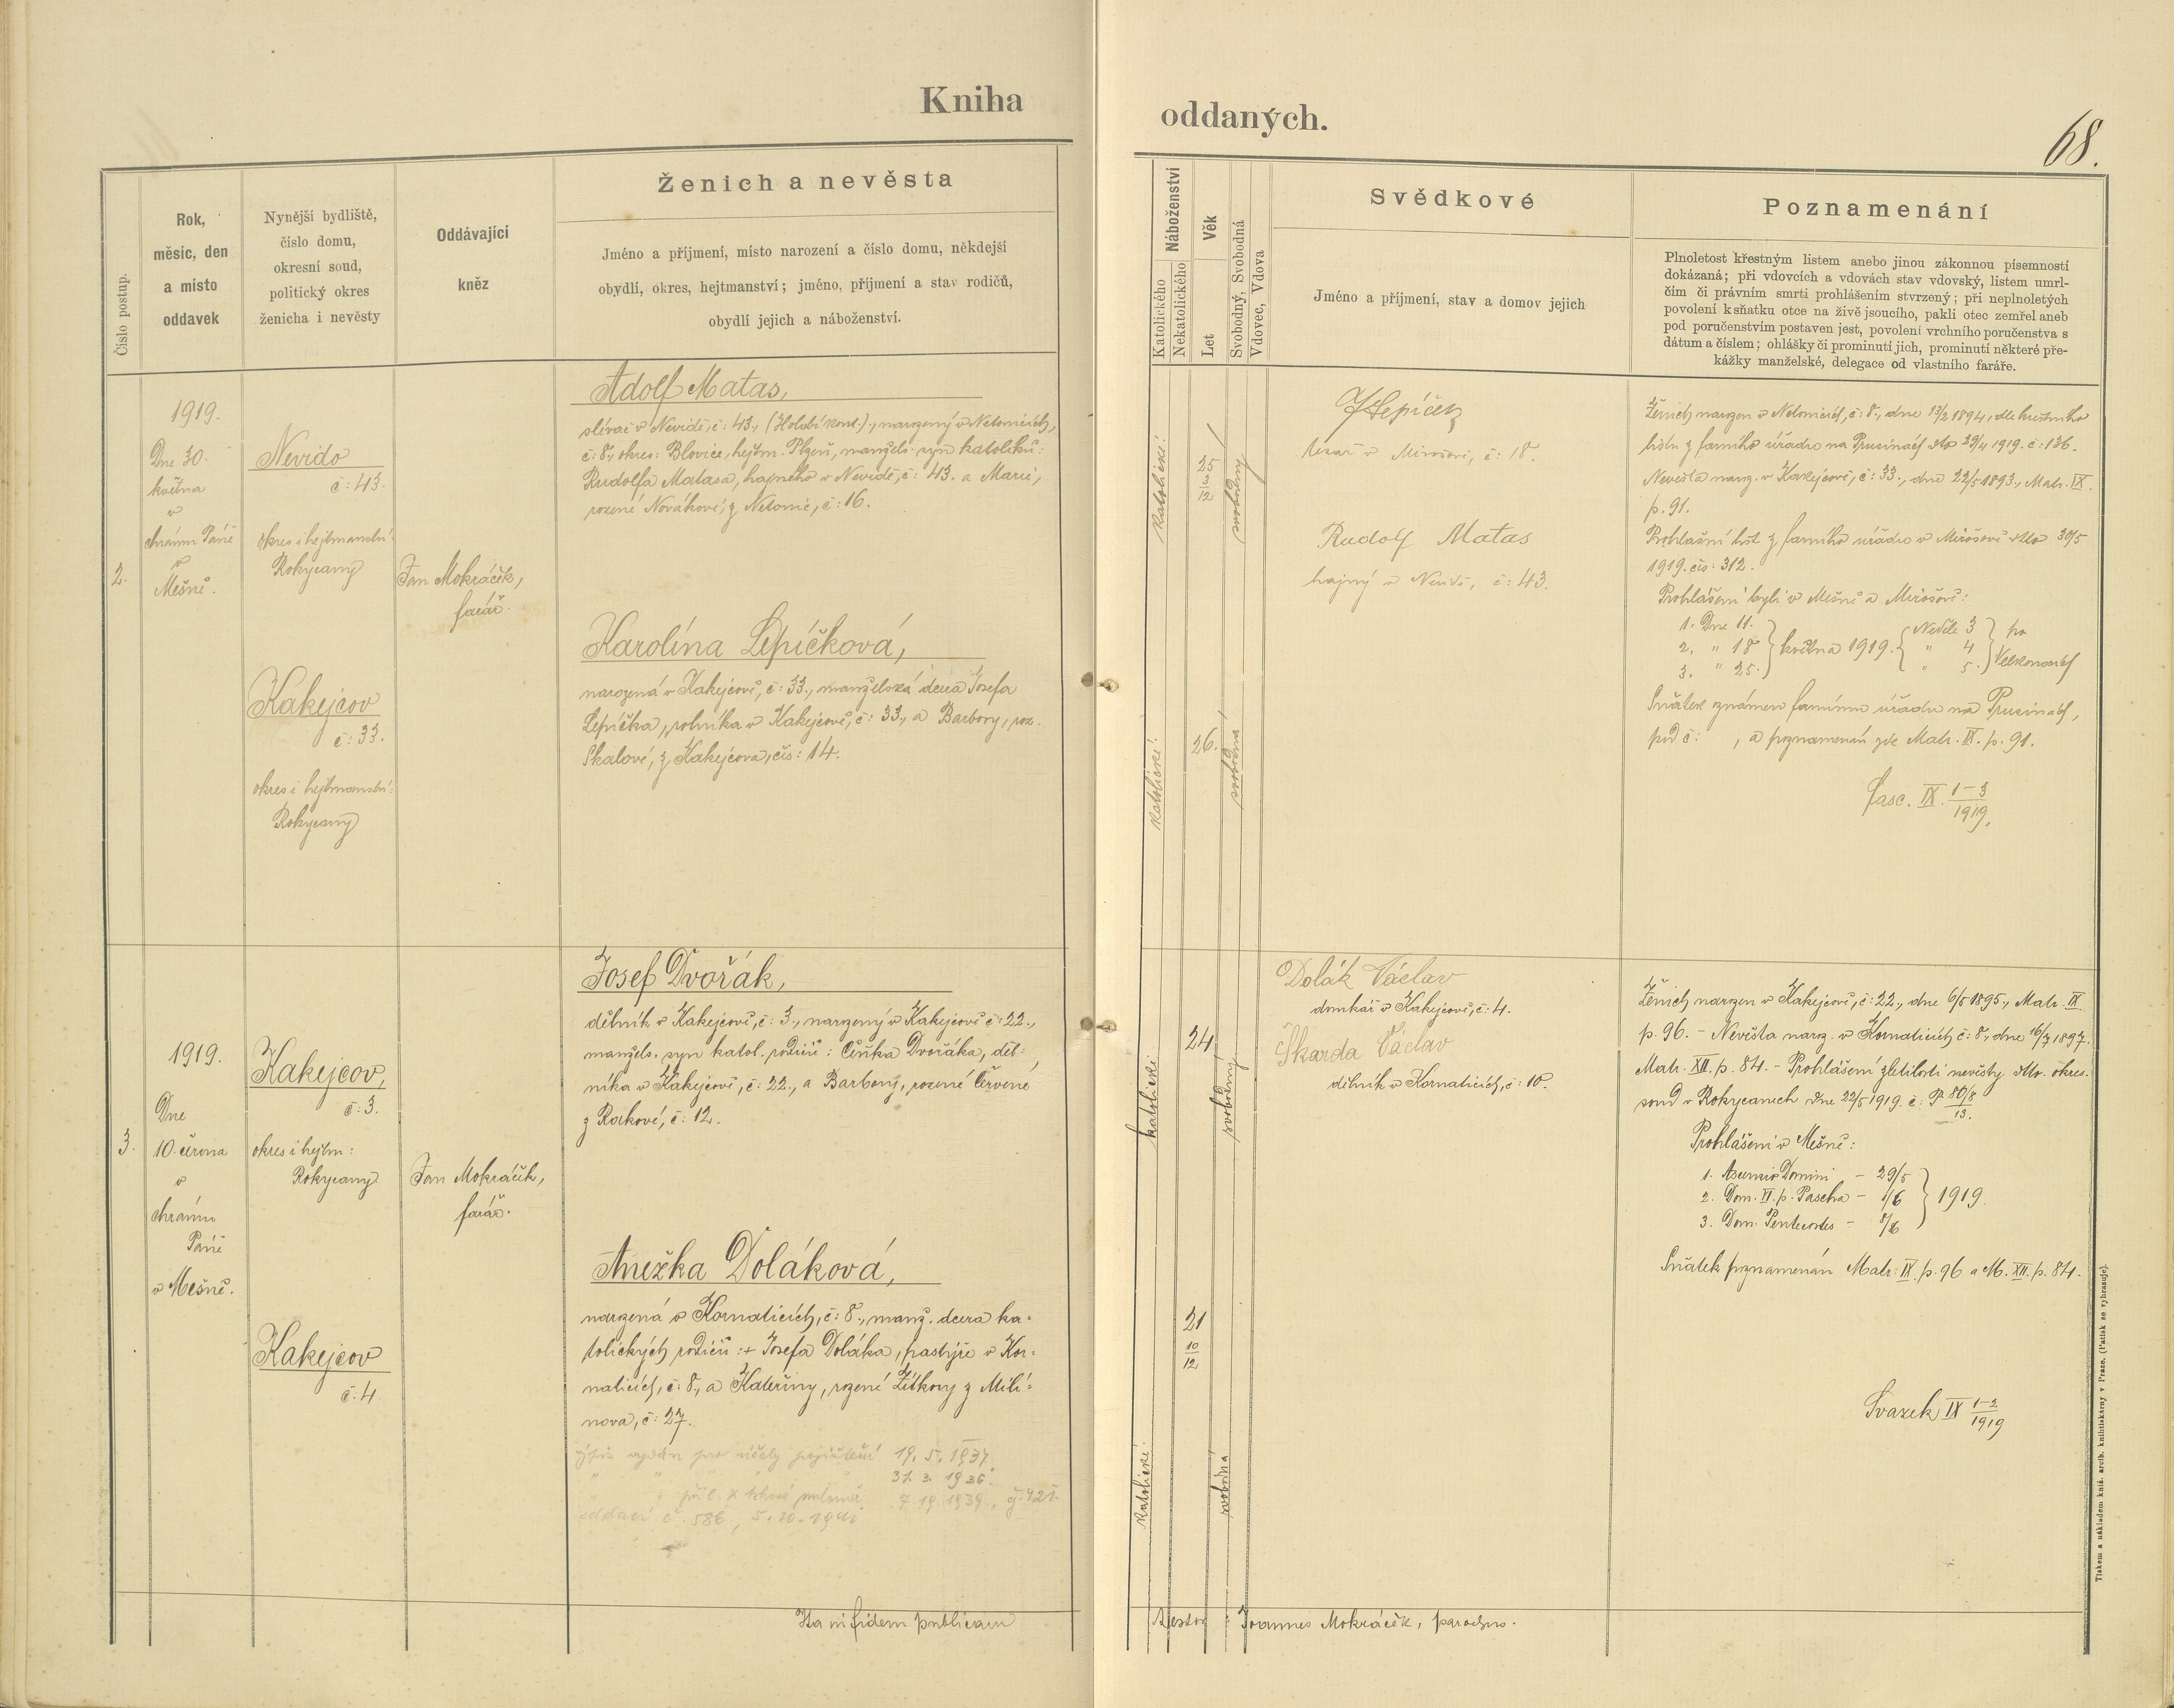 Kniha oddaných.
68.
Číslo postup.
Rok,
měsíc, den
a místo
oddavek
Nynější bydliště,
číslo domu,
okresní soud,
politický okres
ženicha i nevěsty
Oddávající
kněz
Ženich a nevěsta
Jméno a příjmení, místo narození a číslo domu, někdejší
obydlí, okres, hejtmanství; jméno, příjmení a stav rodičů,
obydlí jejich a náboženství.
Náboženství
Katolického
Nekatolického
Věk
Let
Svobodný, Svobodná
Vdovec, Vdova
Svědkové
Jméno a příjmení, stav a domov jejich
Poznamenání
Plnoletost křestným listem anebo jinou zákonnou písemností
dokázaná; při vdovcích a vdovách stav vdovský, listem umrl-
čím či právním smrti prohlášením stvrzený; při neplnoletých
povolení k sňatku otce na živě jsoucího, pakli otec zemřel aneb
pod poručenstvím postaven jest, povolení vrchního poručenstva s
dátum a číslem; ohlášky či prominutí jich, prominutí některé pře-
kážky manželské, delegace od vlastního faráře.
2.
1919.
Dne 30.
května
v
chrámu Páně
v
Mešně.
Nevido
č: 43.
okres i hejtmanství:
Rokycany
Kakejcov
č: 33.
okres i hejtmanství:
Rokycany
Jan Mokráček,
farář.
Adolf Matas,
slévač v Nevidě, č: 43., narozený v Netonicích,
č: 8., okres: Blovice, hejtm. Plzeň, manžels. syn katolíků:
Rudolfa Matasa, hajného v Nevidě, č: 43. a Marie,
rozené Novákové, z Netonic, č: 16.
Karolína Lepíčková,
narozená v Kakejcově, č: 33., manželská dcera Josefa
Lepíčka, rolníka v Kakejcově, č: 33., a Barbory, roz.
Skalové, z Kakejcova, čís: 14.
katolické!
25
3
12
svobodný
katolické!
26.
svobodná
J Lepíček
tesař v Mirošově, č: 18.
Rudolf Matas
hajný v Nevidě, č: 43.
Ženich narozen v Netonicích, č: 8., dne 13/2 1894, dle křestního
listu z farního úřadu na Prusinách dto 29/4 1919. č: 136.
Nevěsta naroz. v Kakejcově, č: 33., dne 22/5 1893., Matr. IX.
p. 91.
Prohlašní list z farního úřadu v Mirošově dto 30/5
1919. čís: 312.
Prohlášeni byli v Mešně a Mirošově:
1. Dne 11. Neděle 3
2. " 18 května 1919. " 4 po
3. " 25. " 5. Velkonocích
Sňatek oznámen farnímu úřadu na Prusinách,
pod č: , a poznamenán zde Matr. IX. p. 91.
Fasc. IX. 1-3
1919.
3.
1919.
Dne
10. června
v
chrámu
Páně
v Mešně.
Kakejcov,
č: 3.
okres i hejtm:
Rokycany
Kakejcov
č. 4.
Jan Mokráček,
farář.
Josef Dvořák,
dělník v Kakejcově, č: 3., narozený v Kakejcově č: 22.,
manžels. syn katol. rodičů: Čeňka Dvořáka, děl-
níka v Kakejcově, č: 22., a Barbory, rozené Červené
z Rakové, č: 12.
Anežka Doláková,
narozená v Kornaticích, č: 8., manž. dcera ka-
tolických rodičů: + Josefa Doláka, pastýře v Kor-
naticích, č: 8., a Kateřiny, rozené Žitkovy z Milí-
nova, č: 27.
výpis vydán pro účely pojištění 19. 5. 1937
" " 31. 3. 1936.
oddací č. 586, 5. 10.
katolické
24
svobodný
katolické
21
10
12
svobodná
Dolák Václav
domkář v Kakejcově, č: 4.
Škarda Václav
dělník v Kornaticích, č: 10.
Ženich narozen v Kakejcově, č: 22., dne 6/5 1895., Matr. IX.
p. 96. - Nevěsta naroz. v Kornaticích č: 8., dne 16/7 1897.
Matr. XII. p. 84. - Prohlášení zletilosti nevěsty dto. okres.
soud v Rokycanech dne 22/5 1919. č: P 80/8
13.
Prohlášeni v Mešně:
1. Ascensio Domini - 29/5
2. Dom. VI. p. Pascha - 1/6 1919.
3. Dom. Pentecostes - 8/6
Sňatek poznamenán Matr. IX. p. 96 a M. XII. p. 84.
Svazek IX 1-2
1919
Ita in fidem publicam
testor: Joannes Mokráček, parochus.
Tiskem a nákladem kníž. arcib. knihtiskárny v Praze. (Patisk se vyhrazuje).